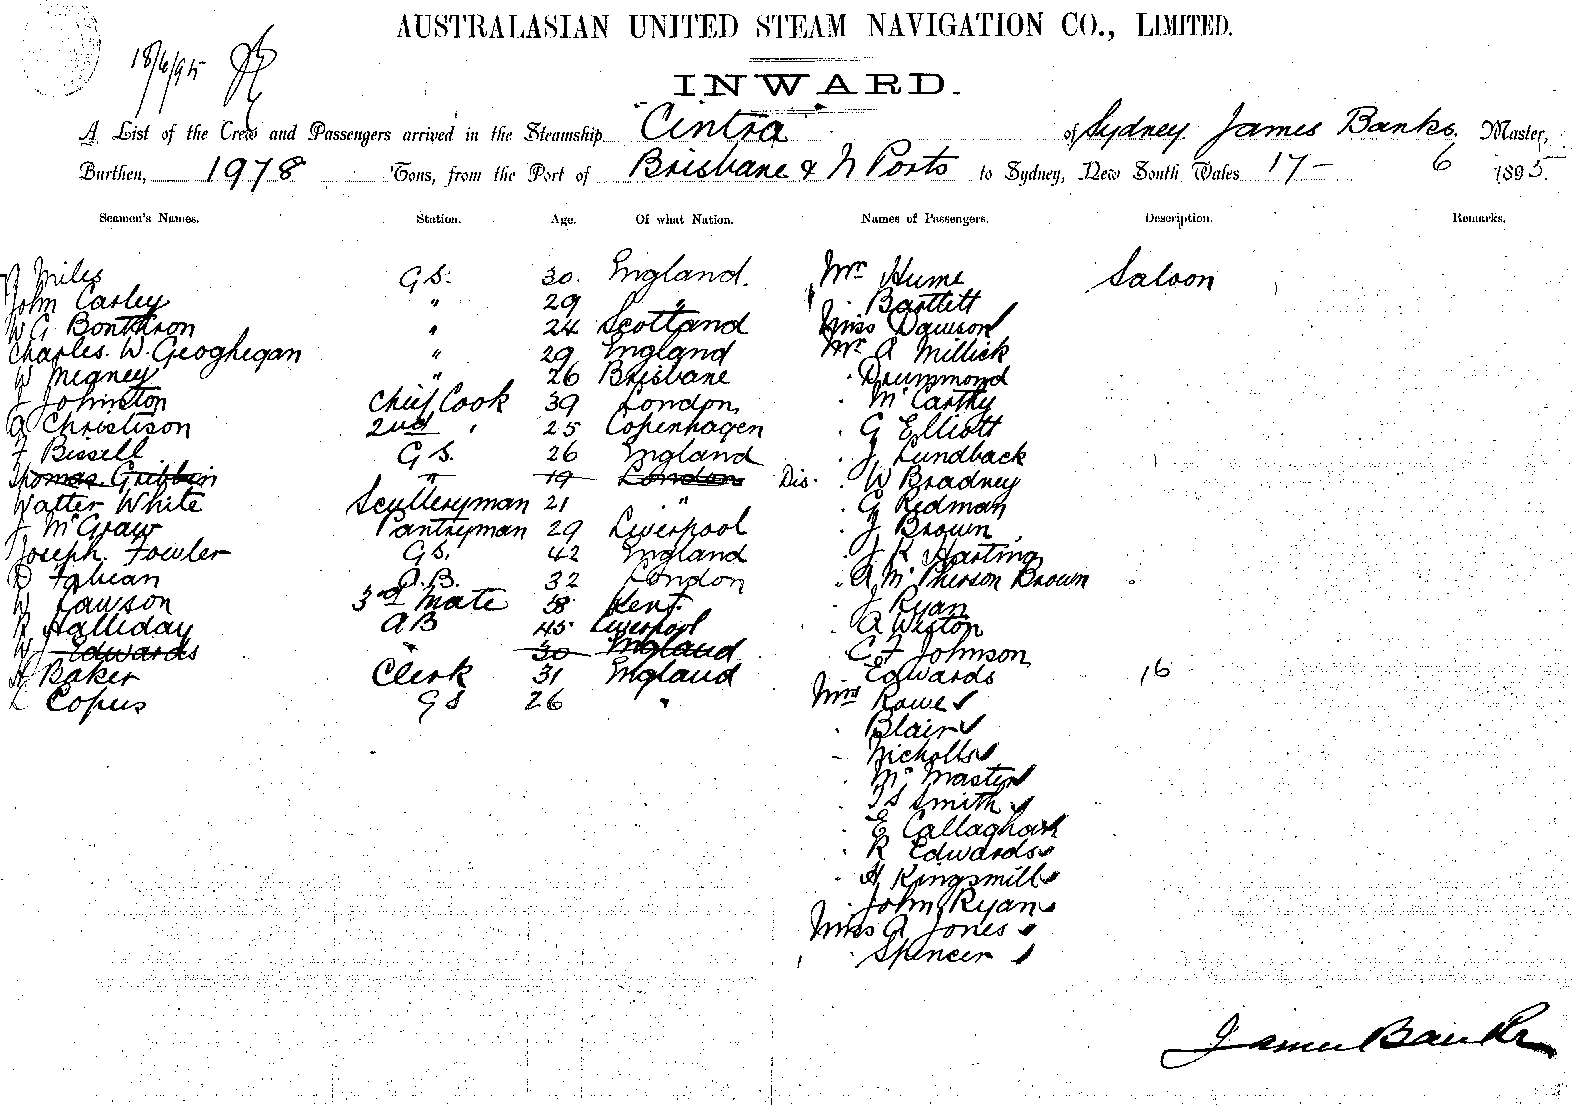 AUSTRALASIAN UNITED STEAM NAVIGATION CO., LIMITED.
18/6/95
INWARD.
A List of the Crew and Passengers arrived in the Steamship Cintra of Sydney James Banks, Master,
Burthen, 1978 Tons, from the Port of Brisbane & N Ports to Sydney, New South Wales 17 - 6 1895.
Seamen's Names. Station. Age. Of what Nation. Names of Passengers. Description. Remarks.
Miles G S. 30. England. Mr Hume Saloon
John Carley " 29 " Bartlett
W G Bonthron " 24 Scotland Miss Dawson
Charles. W. Geoghegan " 29 England Mr A Millick
W Meaney " 26 Brisbane " Drummond
J Johnston Chief Cook 39 London " McCarthy
A Christison 2nd " 25 Copenhagen " G Elliott
F Bissell G S. 26 England " J Lundback
Thomas Gribbin " 19 London Dis. " W Bradney
Walter White Sculleryman 21 " " G Redman
J McGraw Pantryman 29 Liverpool " J Brown
Joseph Fowler G S. 42 England " J R Harting
D Fabian A.B. 32 London " A McPherson Brown
W Lawson 3rd Mate 38 Kent. " J Ryan
R Halliday AB 45 Liverpool " A Weston
W Edwards " 30 England " C F Johnson
H Baker Clerk 31 England Edwards 16
L Copus G S 26 " Mrs Rowe
" Blair
" Nicholls
" McMaster
" T S Smith
" E Callaghan
" R Edwards
" H Kingsmill
" John Ryan
Miss A Jones
" Spencer
James Banks